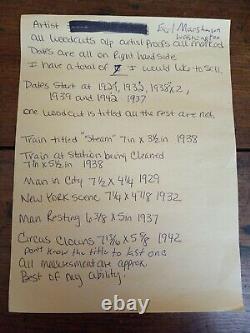 Artist
all woodcuts a/p artist Proofs all marked
Dates are all on Right hand side
I have a total of 7 I would like to sell.
Dates Start at 1929, 1932, 1938x2,
1939 and 1942 1937
one woodcut is titled all the rest are not.
Train titled "Steam" 7in x 3½in 1938
Train at Station being Cleaned
7in x 5½in 1938
Man in City 7½ x 4¼ 1929
New York Scene 7¼ x 4⅞ 1932
Man Resting 6⅜ x 5in 1937
Circus Clowns 7 x 5⅝ 1942
don't know the title to last one
All measurement are approx.
Best of my ability.